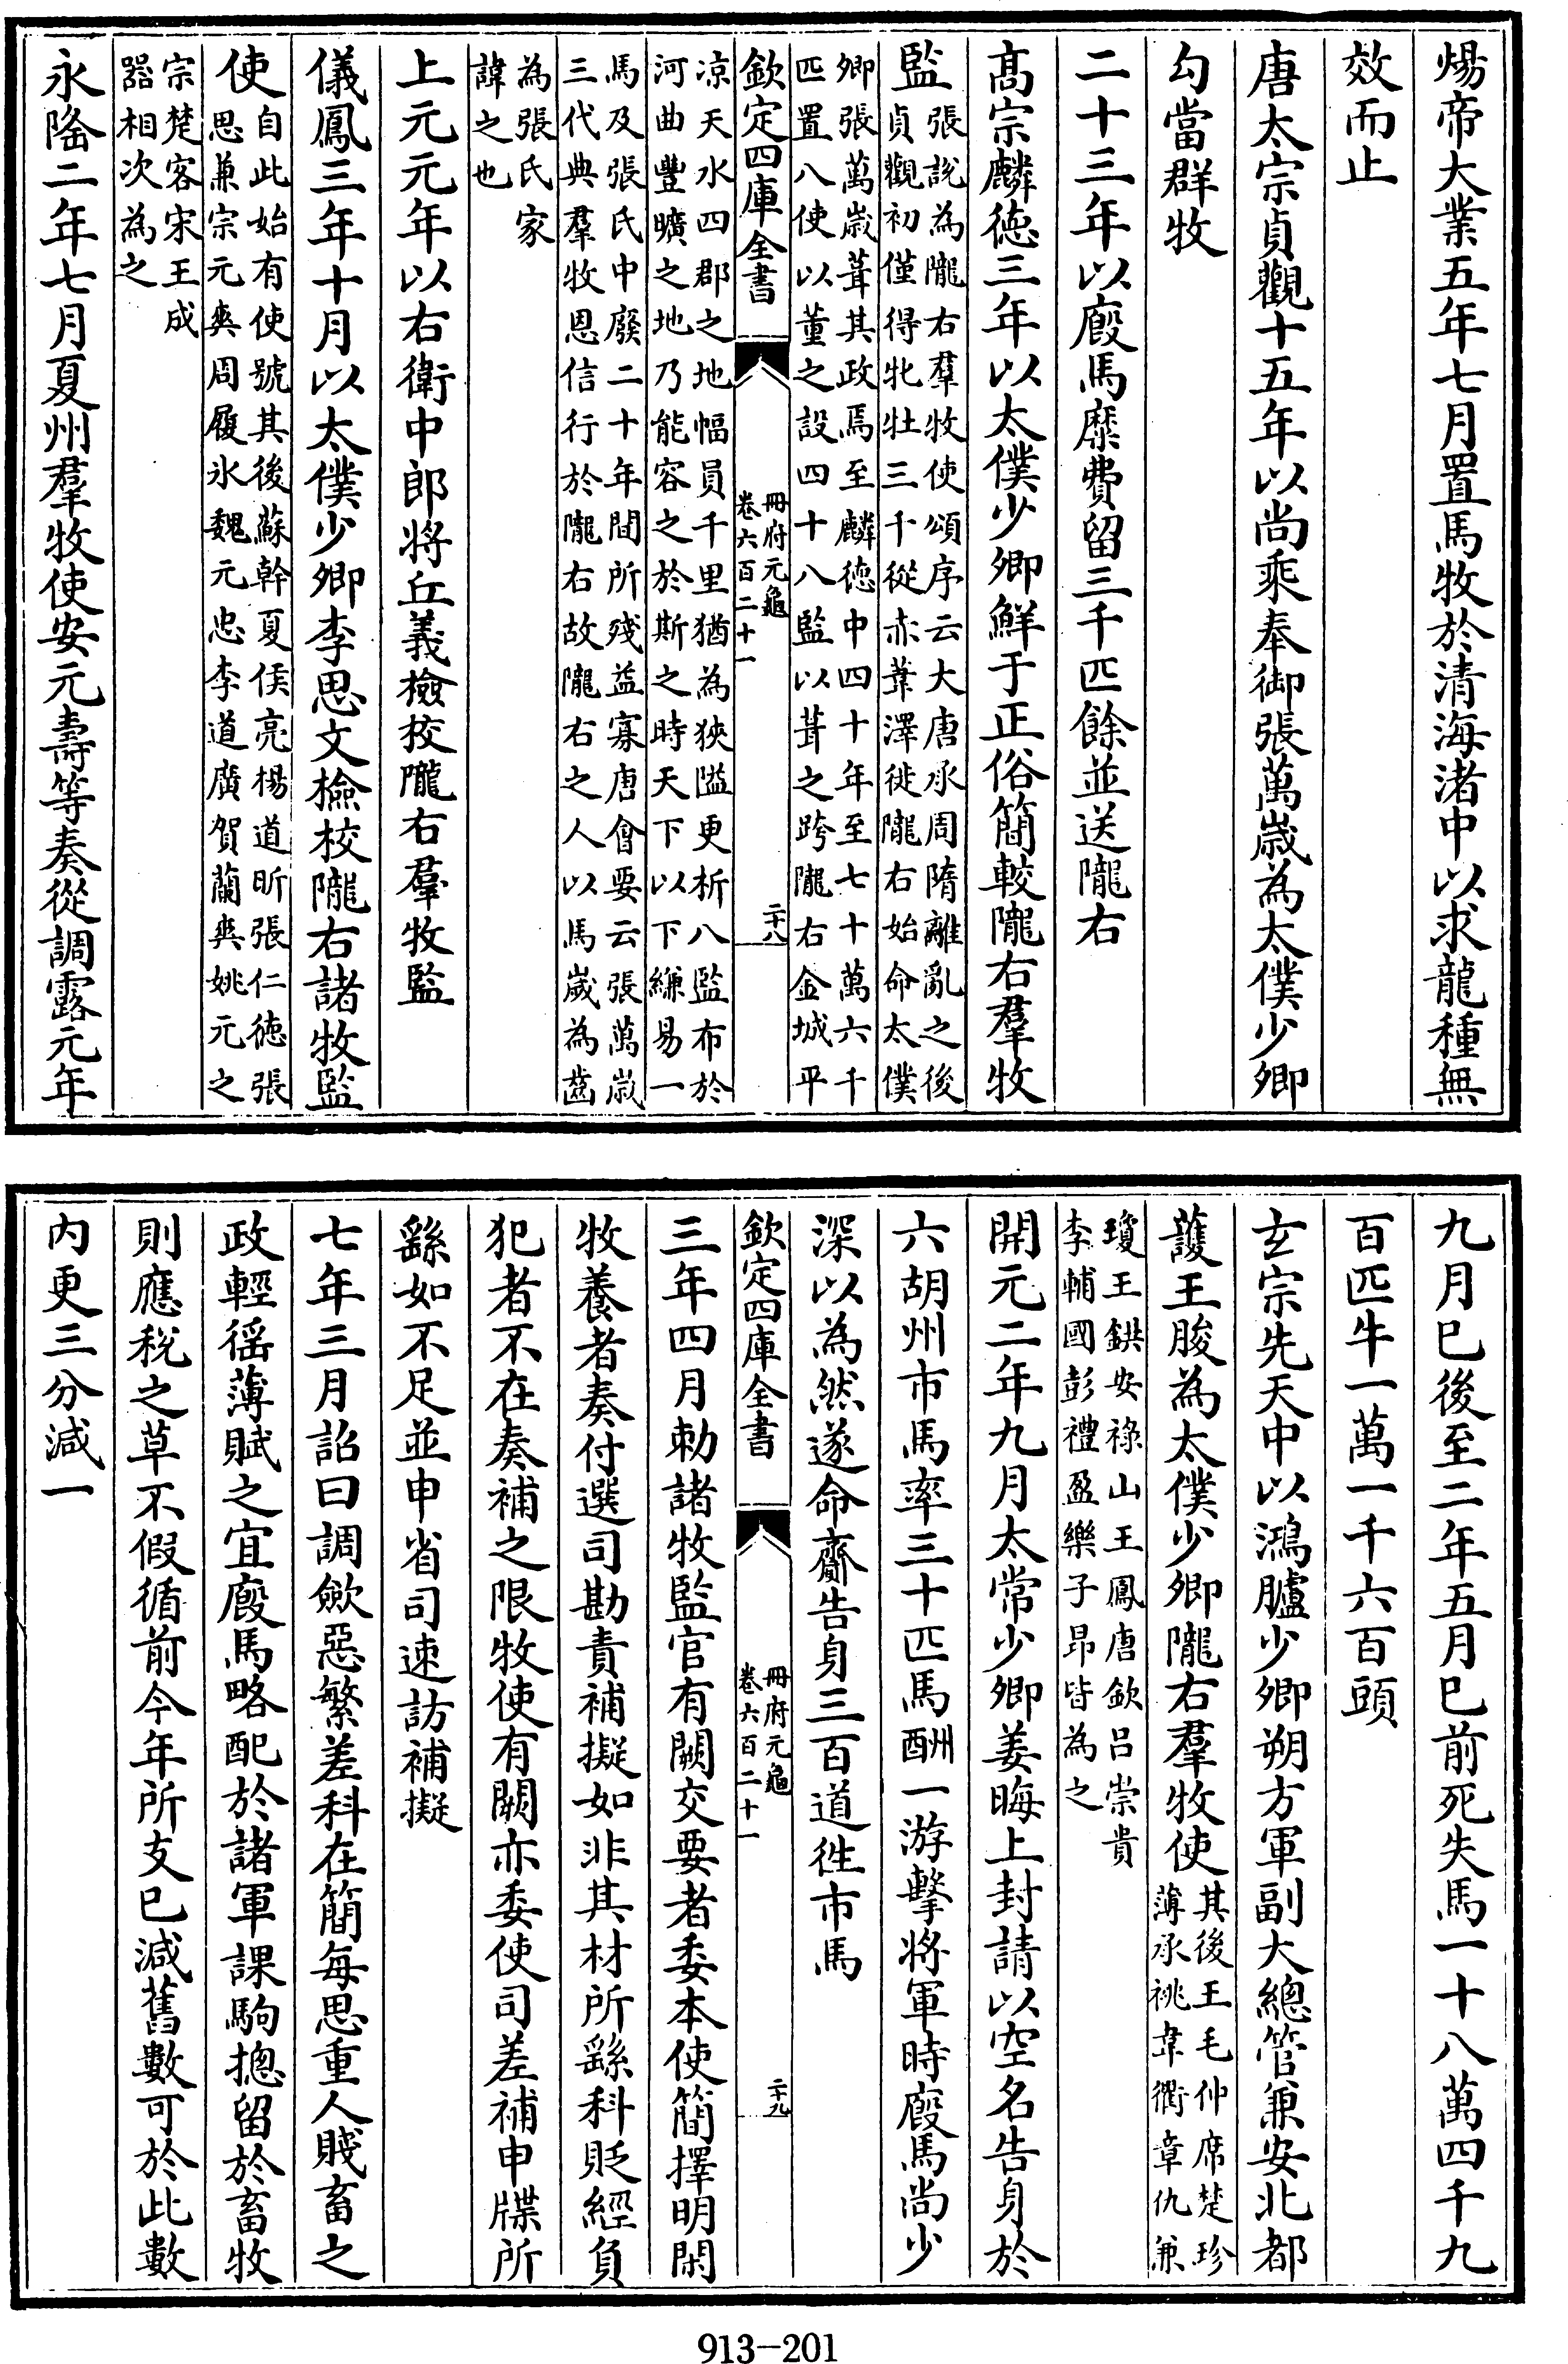 煬帝大業五年七月置馬牧於清海渚中以求龍種無
效而止
唐太宗貞觀十五年以尚乘奉御張萬歲為太僕少卿
勾當群牧
二十三年以廄馬糜費留三千匹餘並送隴右
髙宗麟德三年以太僕少卿鮮于正俗簡較隴右羣牧
監張說為隴右羣牧使頌序云大唐承周隋離亂之後
貞觀初僅得牝牡三千從赤葦澤徙隴右始命太僕
卿張萬歲葺其政焉至麟德中四十年至七十萬六千
匹置八使以董之設四十八監以葺之跨隴右金城平
欽定四庫全書
冊府元龜
卷六百二十一
二十八
凉天水四郡之地幅員千里猶為狹隘更析八監布於
河曲豐曠之地乃能容之於斯之時天下以下縑易一
馬及張氏中廢二十年間所殘益寡唐會要云張萬歲
三代典羣牧恩信行於隴右故隴右之人以馬歲為齒
為張氏家
諱之也
上元元年以右衛中郎將丘義檢校隴右羣牧監
儀鳳三年十月以太僕少卿李思文檢校隴右諸牧監
使自此始有使號其後蘇幹夏侯亮楊道昕張仁徳張
思兼宗元爽周履氷魏元忠李道廣賀蘭爽姚元之
宗楚客宋王成
器相次為之
永隆二年七月夏州羣牧使安元壽等奏從調露元年
九月已後至二年五月已前死失馬一十八萬四千九
百匹牛一萬一千六百頭
玄宗先天中以鴻臚少卿朔方軍副大總管兼安北都
護王脧為太僕少卿隴右羣牧使其後王毛仲席楚珍
薄承祧韋衢章仇兼
瓊王鉷安祿山王鳳唐欽吕崇貴
李輔國彭禮盈樂子昂皆為之
開元二年九月太常少卿姜晦上封請以空名告身於
六胡州市馬率三十匹馬酬一游擊將軍時廄馬尚少
深以為然遂命齎告身三百道徃市馬
欽定四庫全書
冊府元龜
卷六百二十一
二十九
三年四月勅諸牧監官有闕交要者委本使簡擇明閑
牧養者奏付選司勘責補擬如非其材所繇科貶經負
犯者不在奏補之限牧使有闕亦委使司差補申牒所
繇如不足並申省司速訪補擬
七年三月詔曰調歛惡繁差科在簡每思重人賤畜之
政輕徭薄賦之宜廄馬略配於諸軍課駒摠留於畜牧
則應稅之草不假循前今年所支已減舊數可於此數
内更三分減一
913-201